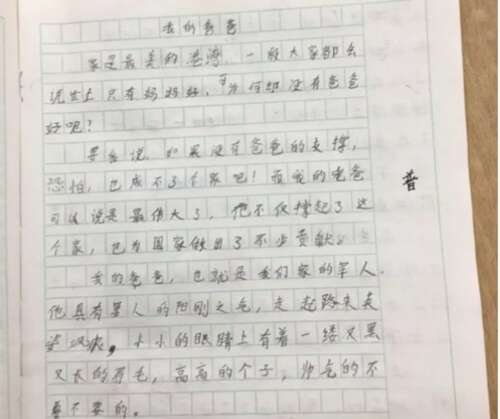 我的爸爸
家是最美的港湾，一般大家都会
说世上只有妈妈好，为何却没有爸爸
好呢？
要我说，如果没有爸爸的支撑，
恐怕，也成不了个家吧！而我的爸爸
可以说是最伟大了，他不仅撑起了这
个家，也为国家做出了不少贡献。
我的爸爸，也就是我们家的军人。
他具有军人的阳刚之气，走起路来
小小的眼睛上有着一缕又黑
又长的眉毛，高高的个子，帅气的不
要不要的。
普